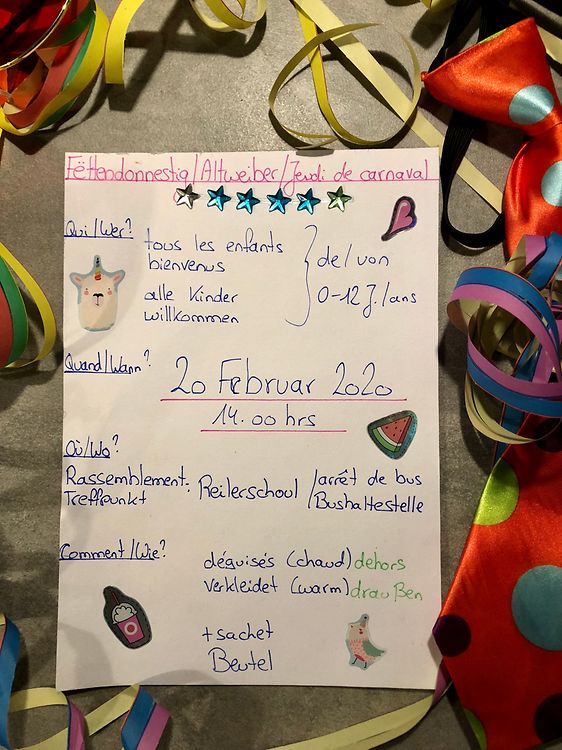 Fëttendonnestig/Altweiber/Jeudi de carnaval
Qui/Wer?
tous les enfants
bienvenus
alle Kinder
willkommen
de/von
0-12 J./ans
Quand/Wann?
20 Februar 2020
14.00 hrs
Où/Wo?
Rassemblement:
Treffpunkt
Reilerschoul
/arrêt de bus
/Bushaltestelle
Comment/Wie?
déguisés (chaud) dehors
verkleidet (warm) draußen
+ sachet
Beutel